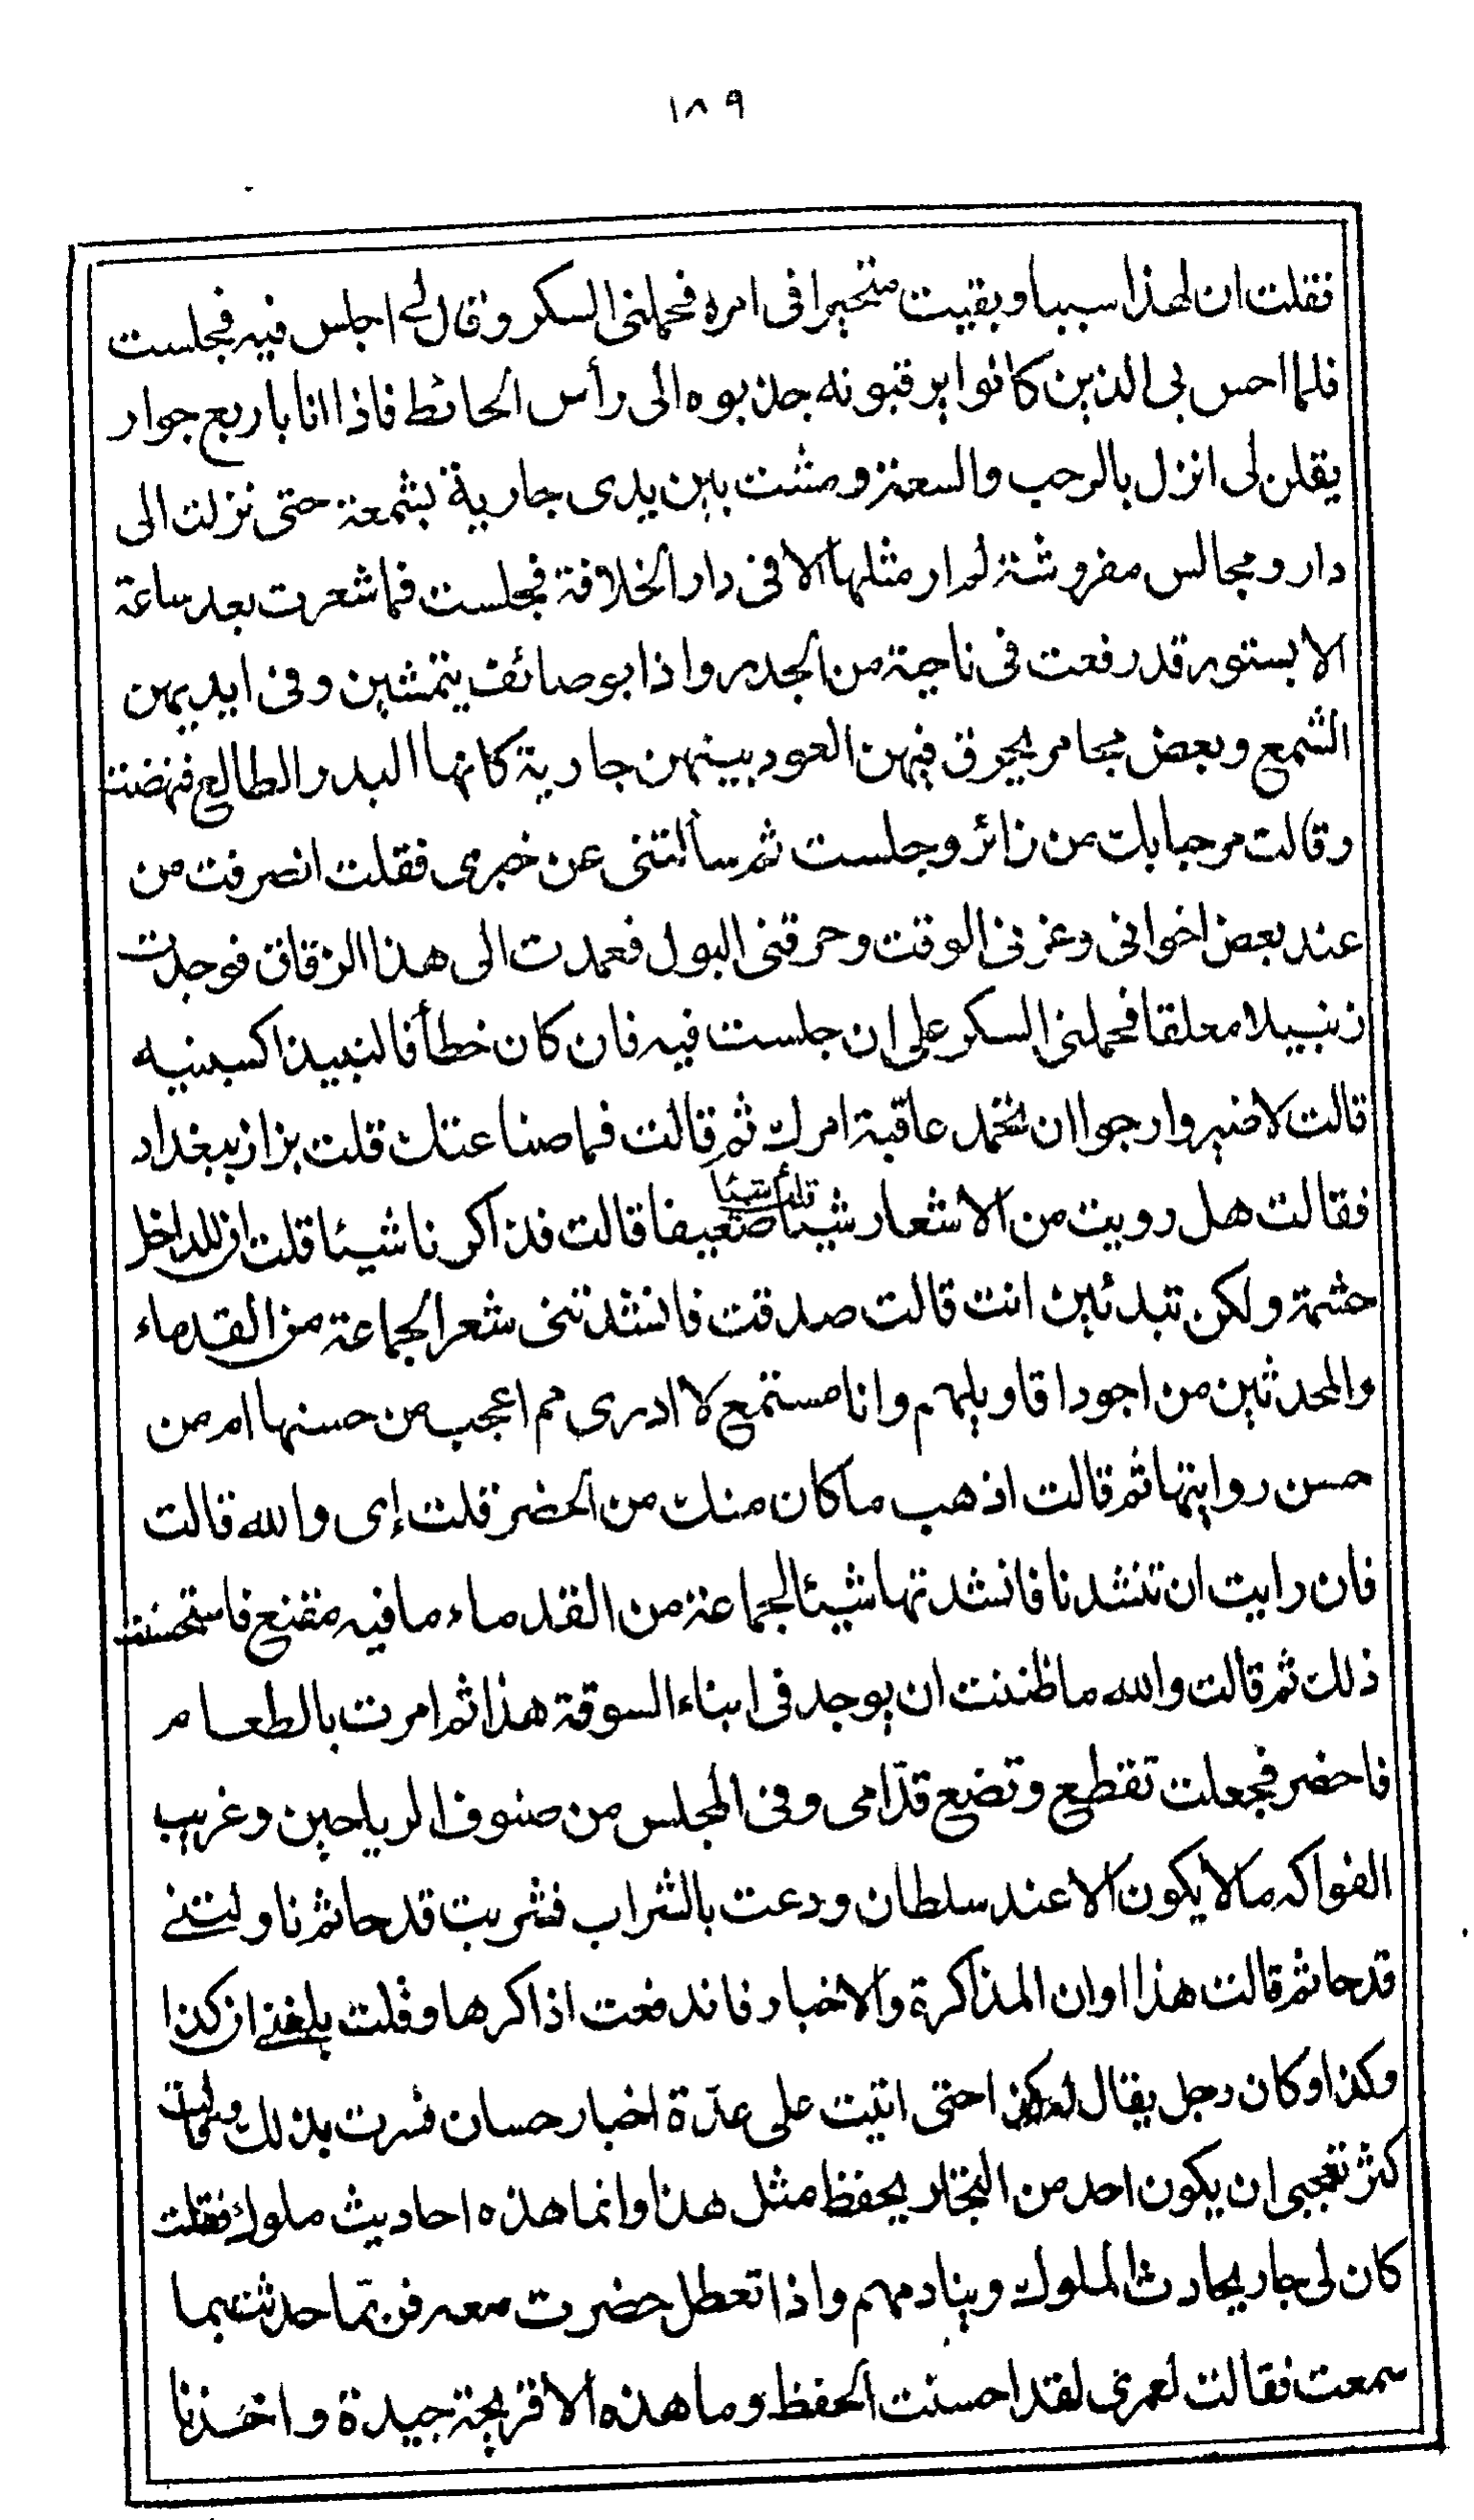 ١٨٩
فقلت ان لهذا سببا وبقيت متحيرا فى امره فحملنى السكر وقال لى اجلس فيه فجلست
فلما احس بى الذين كانوا يرقبونه جذبوه الى رأس الحائط فاذا انا باربع جوار
يقلن لى انزل بالرحب والسعة ومشت بين يدى جارية بشمعة حتى نزلت الى
دار ومجالس مفروشة لم ار مثلها الا فى دار الخلافة فجلست فما شعرت بعد ساعة
الا بستور قد رفعت فى ناحية من الجدر واذا بوصائف يتمشين وفى ايديهن
الشمع وبعض مجامر يحرق فيهن العود بينهن جارية كانها البدر الطالع فنهضت
وقالت مرحبا بك من زائر وجلست ثم سألتنى عن خبرى فقلت انصرفت من
عند بعض اخوانى وغرنى الوقت وحرقنى البول فعمدت الى هذا الزقاق فوجدت
زنبيلا معلقا فحملنى السكر على ان جلست فيه فان كان خطأ فالنبيذ اكسبنيه
قالت لا ضير وارجوا ان تحمد عاقبة امرك ثم قالت فما صناعتك قلت بزاز ببغداد
فقالت هل رويت من الاشعار شيئا قلت شيئا ضعيفا قالت فذاكرنا شيئا قلت ان للداخل
حشمة ولكن تبدئين انت قالت صدقت فانشدتنى شعر الجماعة من القدماء
والمحدثين من اجود اقاويلهم وانا مستمع لا ادرى مم اعجب من حسنها ام من
حسن روايتها ثم قالت اذهب ما كان منك من الحضر قلت إى والله قالت
فان رايت ان تنشدنا فانشدتها شيئا لجماعة من القدماء ما فيه مقنع فاستحسنت
ذلك ثم قالت والله ما ظننت ان يوجد فى ابناء السوقة هذا ثم امرت بالطعام
فاحضر فجعلت تقطع وتضع قدّامى وفى المجلس من صنوف الرياحين وغريب
الفواكه ما لا يكون الا عند سلطان ودعت بالشراب فشربت قدحا ثم ناولتنى
قدحا ثم قالت هذا اوان المذاكرة والاخبار فاندفعت اذاكرها وقلت بلغنى ان كذا
وكذا وكان رجل يقال له كذا حتى اتيت على عدّة اخبار حسان فسرت بذلك وقالت
كثر تعجبى ان يكون احد من التجار يحفظ مثل هذا وانما هذه احاديث ملوك فقلت
كان لى جار يحادث الملوك وينادمهم واذا تعطل حضرت معه فربما حدثت بما
سمعت فقالت لعمرى لقد احسنت الحفظ وما هذه الا قريحة جيدة واخذنا